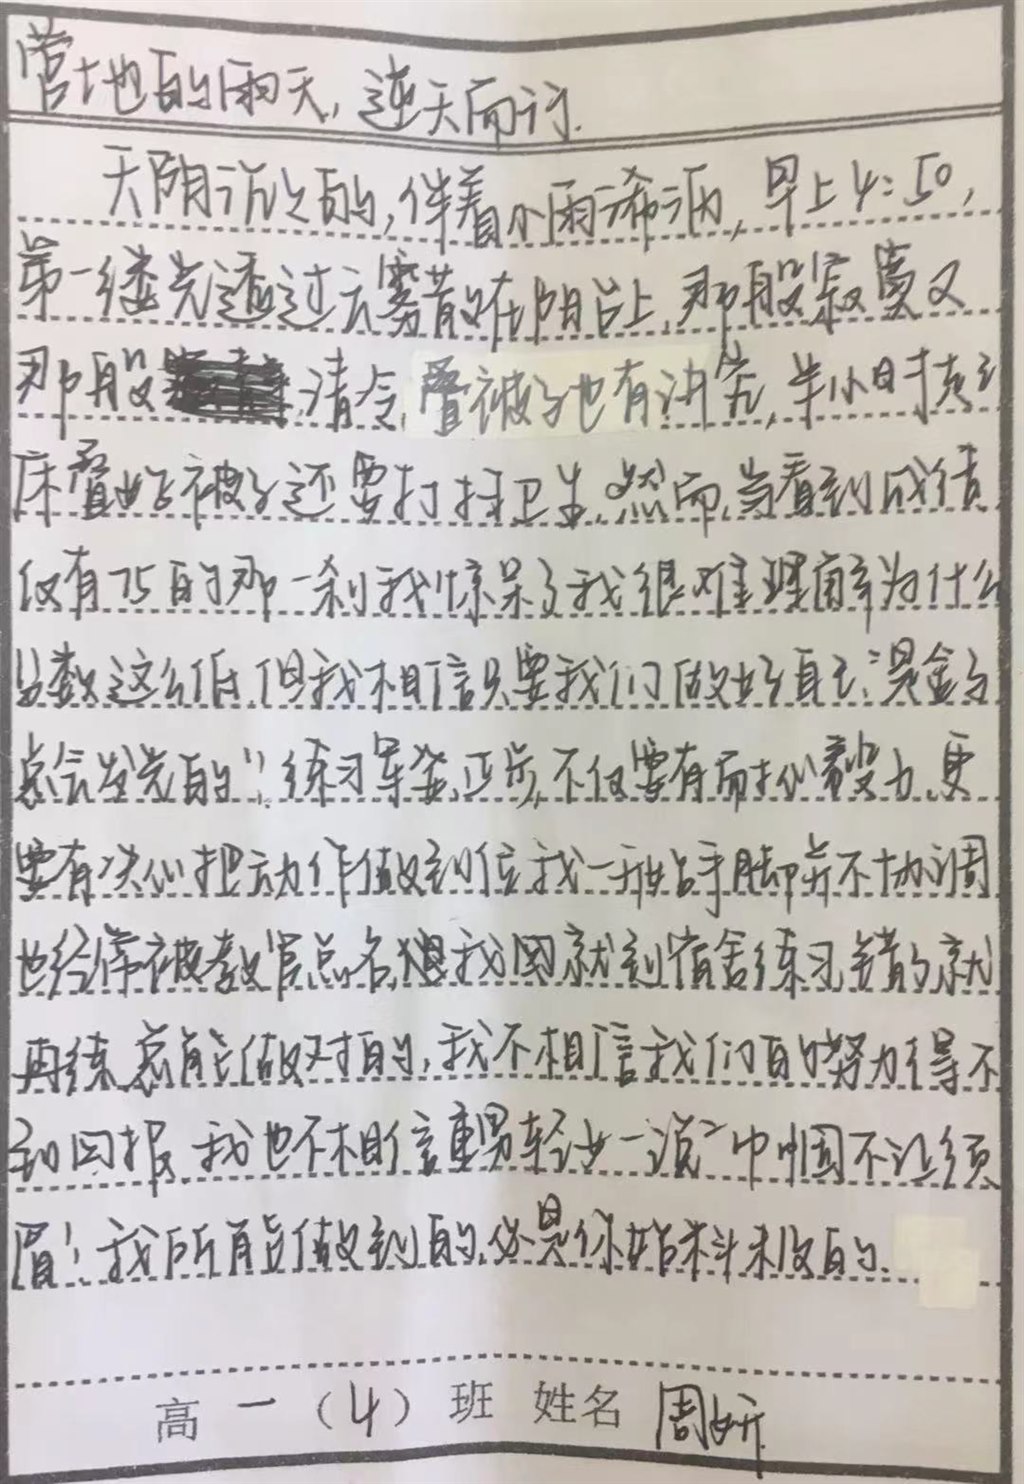 营地的雨天，逆天而行.
天阴沉沉的，伴着小雨希雨，早上4:50，
第一缕光透过云雾散在阳台上，那股寂寞又
那股 清冷，叠被子也有讲究，半小时
床叠好被子还要打扫卫生，然而，当看到成绩
仅有75的那一刹我惊呆了我很难理解为什么
分数这么低，但我相信只要我们做好自己，“是金子
总会发光的”，练习军姿，正步，不仅要有耐心毅力，更
要有决心把动作做到位我一开始手脚并不协调
也经常被教官点名，我就到宿舍练习，错的就
再练，总能做对的，我不相信我们的努力得不
到回报，我也不相信重男轻女一说“巾帼不让须
眉”，我所能做到的，必是你始料未及的.
高一（4）班 姓名 周妍